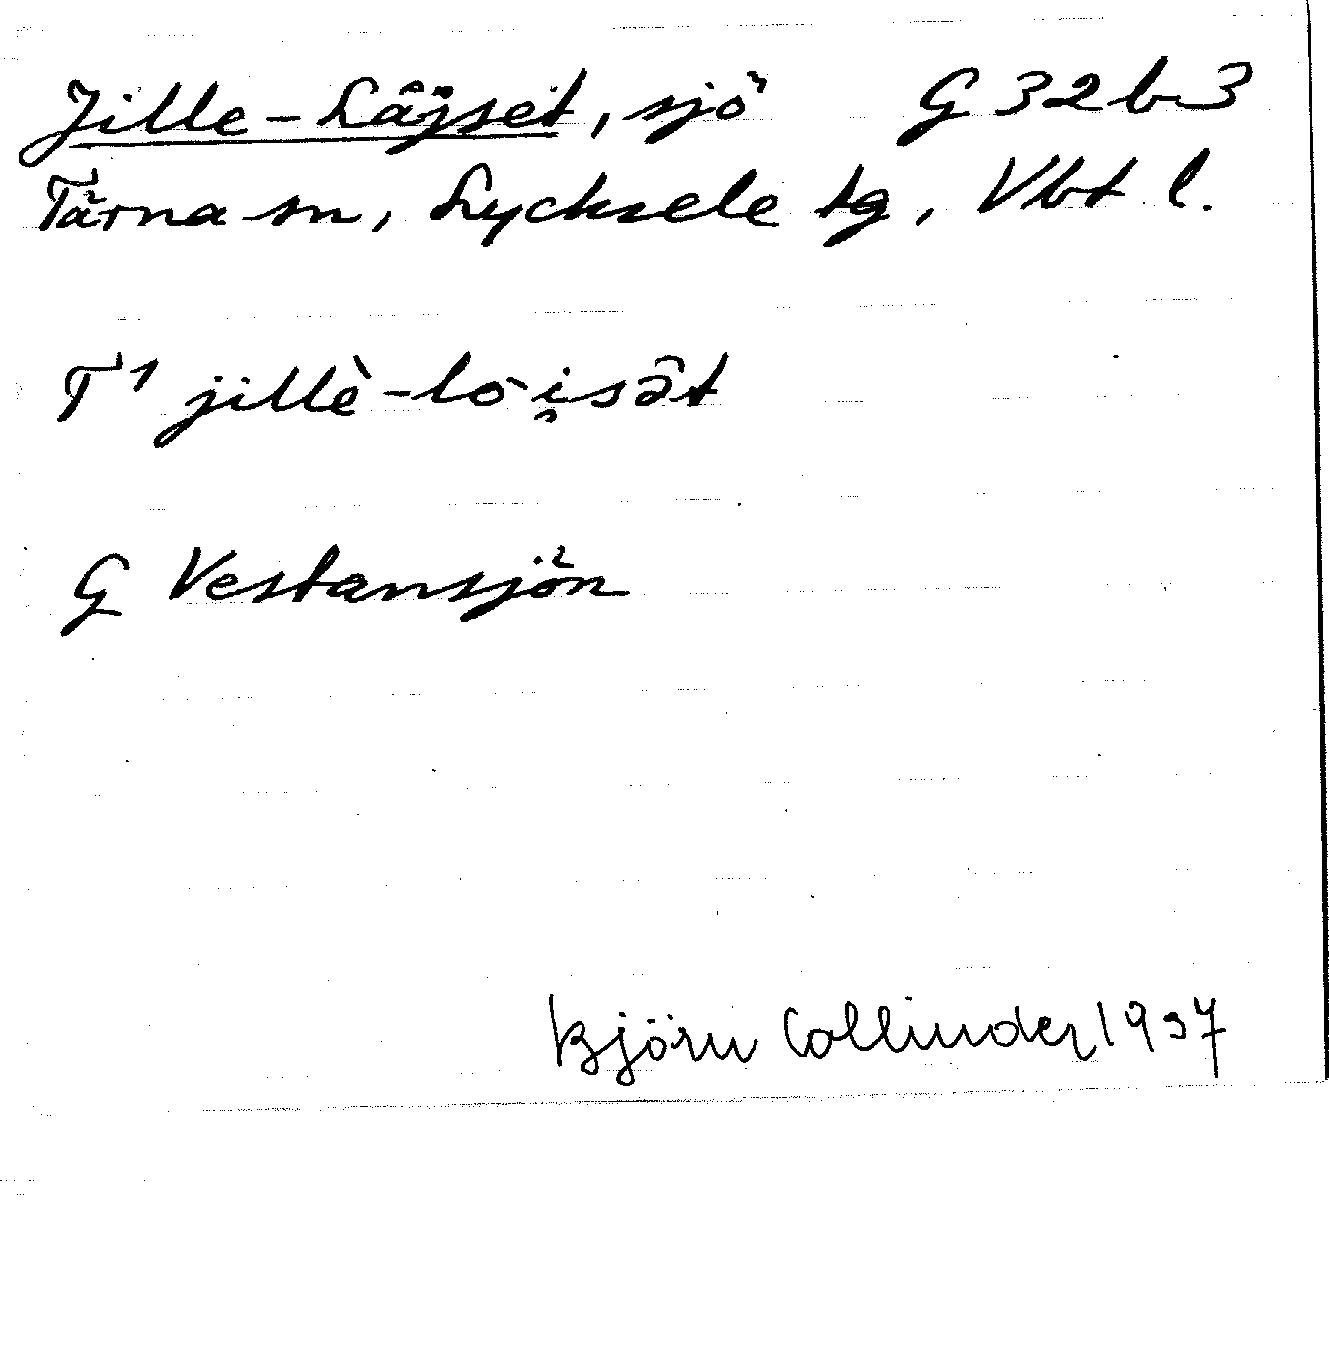 Jille-Lâjset, sjö G 32 b 3
Tärna sn, Lycksele tg, Vbt l.
T¹ jillè-lo-i̯sât
G Vestansjön
Björn Collinder 1937